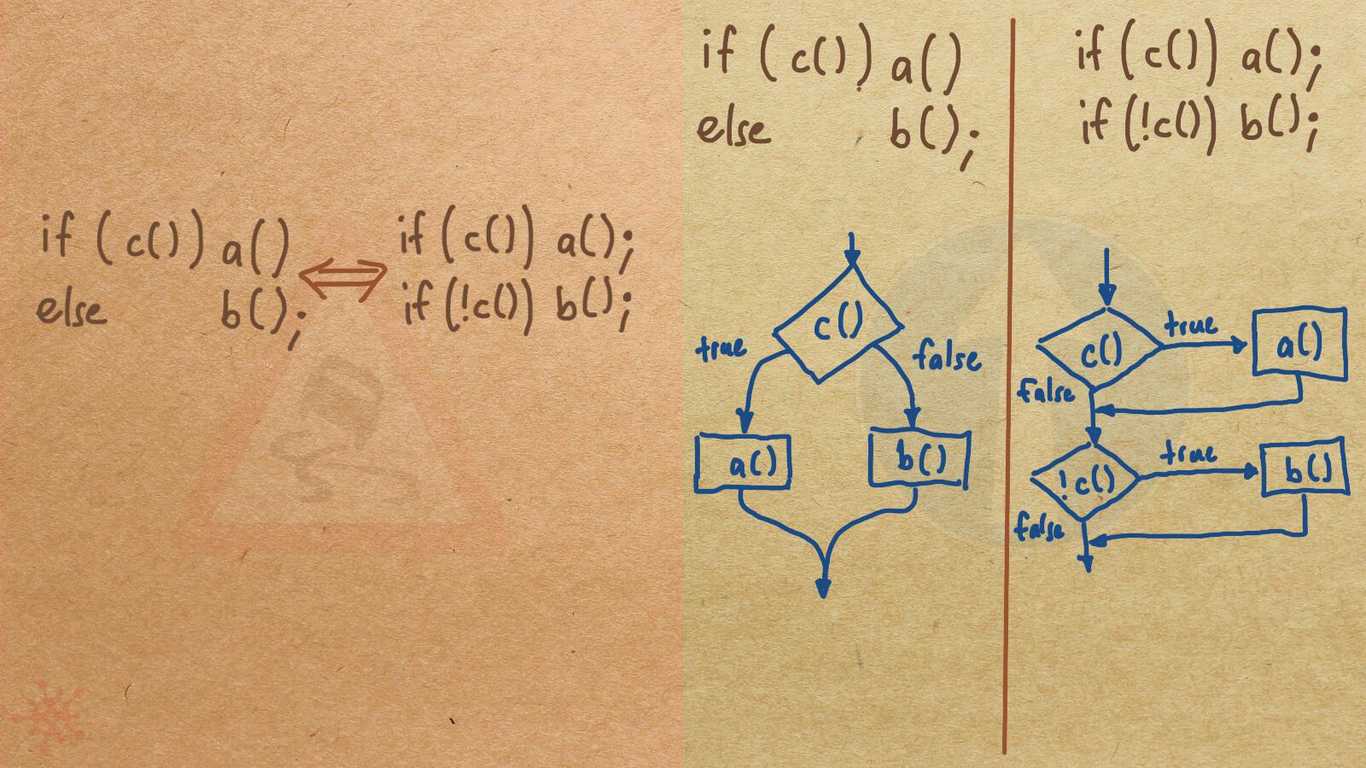 if (c()) a()
else b();
if (c()) a();
if (!c()) b();
if (c()) a()
else b();
c()
true
false
a()
b()
if (c()) a();
if (!c()) b();
c()
true
a()
false
!c()
true
b()
false